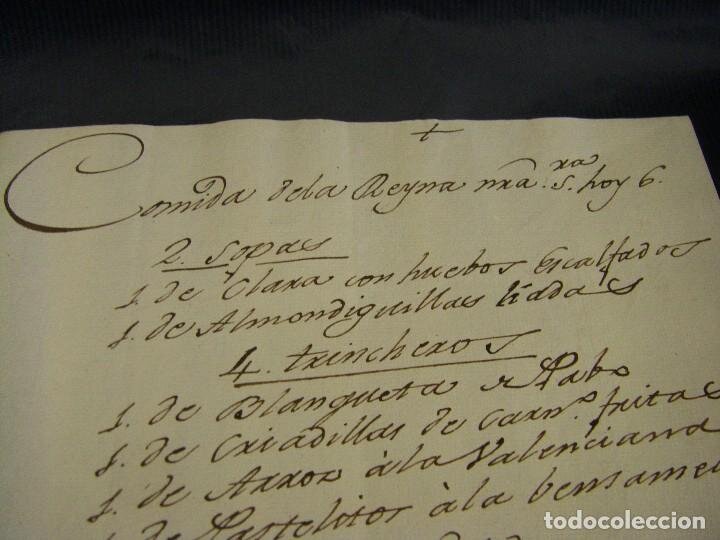 +
Comida dela Reyna nrã. s.ra hoy 6.
2. Sopas
1. de Clara con huebos Escalfados
1. de Almondiguillas liadas
4. trincheros
1. de Blanqueta de Pabo
1. de Criadillas de Carn.o fritas
1. de Arroz à la Valenciana
1. de Pastelitos à la bensamel
todocoleccion.net